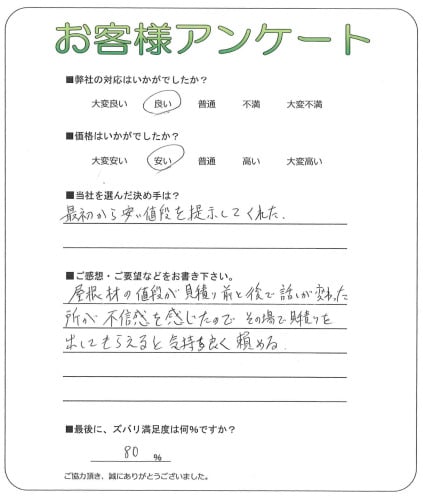 お客様アンケート
■弊社の対応はいかがでしたか？
大変良い 良い 普通 不満 大変不満
■価格はいかがでしたか？
大変安い 安い 普通 高い 大変高い
■当社を選んだ決め手は？
最初から安い値段を提示してくれた.
■ご感想・ご要望などをお書き下さい。
屋根材の値段が見積り前と後で話しが変わった
所が不信感を感じたので その場で見積りを
出してもらえると気持ち良く頼める.
■最後に、ズバリ満足度は何%ですか？
80 %
ご協力頂き、誠にありがとうございました。